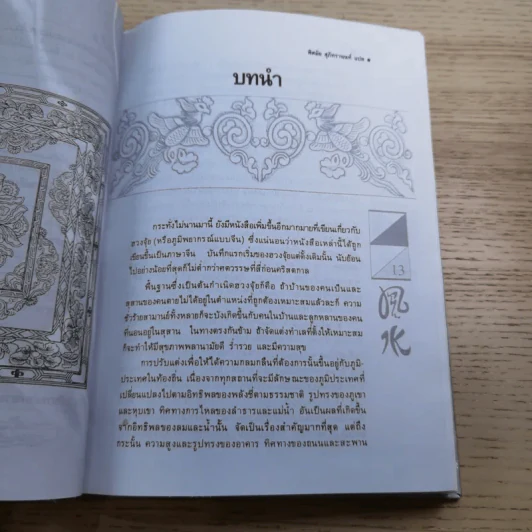 พิศมัย สุภัทรานนท์ แปล
บทนำ
กระทั่งไม่นานมานี้ ยังมีหนังสือเพิ่มขึ้นอีกมากมายที่เขียนเกี่ยวกับ
ฮวงจุ้ย (หรือภูมิพยากรณ์แบบจีน) ซึ่งแน่นอนว่าหนังสือเหล่านี้ได้ถูก
เขียนขึ้นเป็นภาษาจีน บันทึกแรกเริ่มของฮวงจุ้ยแต่ดั้งเดิมนั้น นับย้อน
ไปอย่างน้อยที่สุดก็ไม่ต่ำกว่าศตวรรษที่สี่ก่อนคริสตกาล
พื้นฐานซึ่งเป็นต้นกำเนิดฮวงจุ้ยก็คือ ถ้าบ้านของคนเป็นและ
สุสานของคนตายไม่ได้อยู่ในตำแหน่งที่ถูกต้องเหมาะสมแล้วละก็ ความ
ชั่วร้ายสามานย์ทั้งหลายก็จะบังเกิดขึ้นกับคนในบ้านและลูกหลานของคน
ที่นอนอยู่ในสุสาน ในทางตรงกันข้าม ถ้าจัดแต่งทำเลที่ตั้งให้เหมาะสม
ก็จะทำให้มีสุขภาพพลานามัยดี ร่ำรวย และมีความสุข
การปรับแต่งเพื่อให้ได้ความกลมกลืนที่ต้องการนั้นขึ้นอยู่กับภูมิ-
ประเทศในท้องถิ่น เนื่องจากทุกสถานที่จะมีลักษณะของภูมิประเทศที่
เปลี่ยนแปลงไปตามอิทธิพลของพลังชี่ตามธรรมชาติ รูปทรงของภูเขา
และหุบเขา ทิศทางการไหลของลำธารและแม่น้ำ อันเป็นผลที่เกิดขึ้น
จากอิทธิพลของลมและน้ำนั้น จัดเป็นเรื่องสำคัญมากที่สุด แต่ถึง
กระนั้น ความสูงและรูปทรงของอาคาร ทิศทางของถนนและสะพาน
13
風水